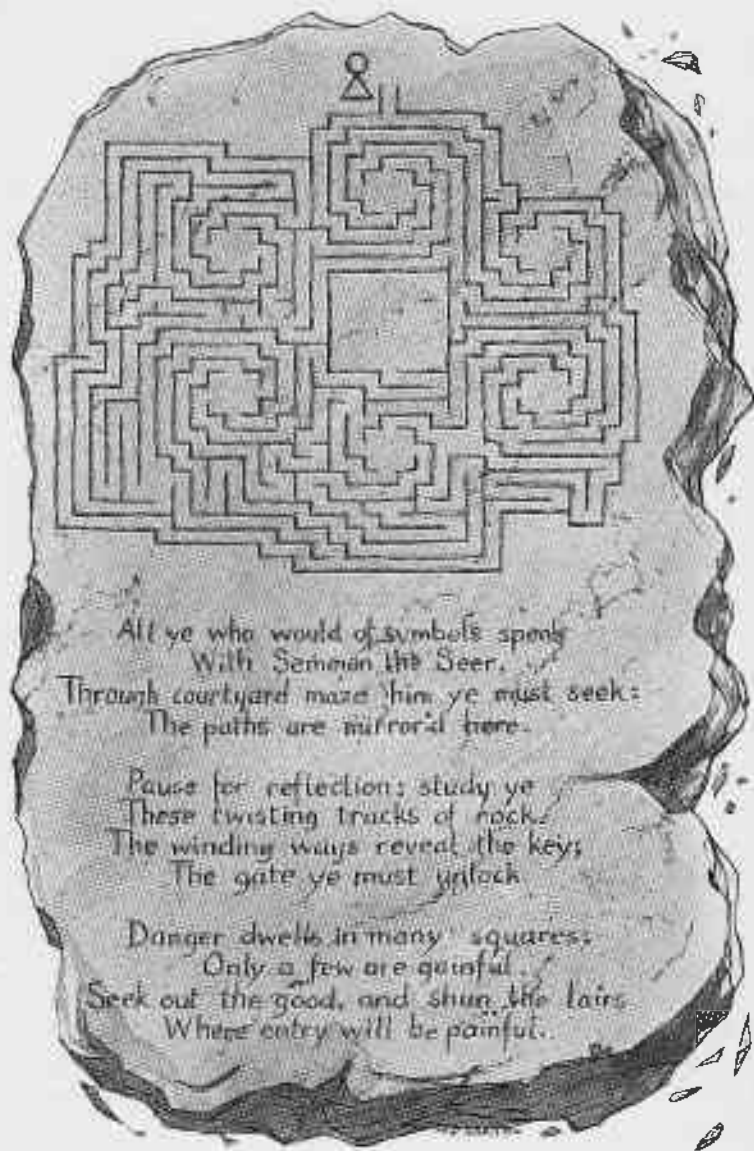 All ye who would of symbols speak
With Semman the Seer,
Through courtyard maze him ye must seek:
The paths are mirror'd here.
Pause for reflection; study ye
These twisting tracks of rock.
The winding ways reveal the key;
The gate ye must unlock
Danger dwells in many squares;
Only a few are gainful.
Seek out the good, and shun the lairs
Where entry will be painful.